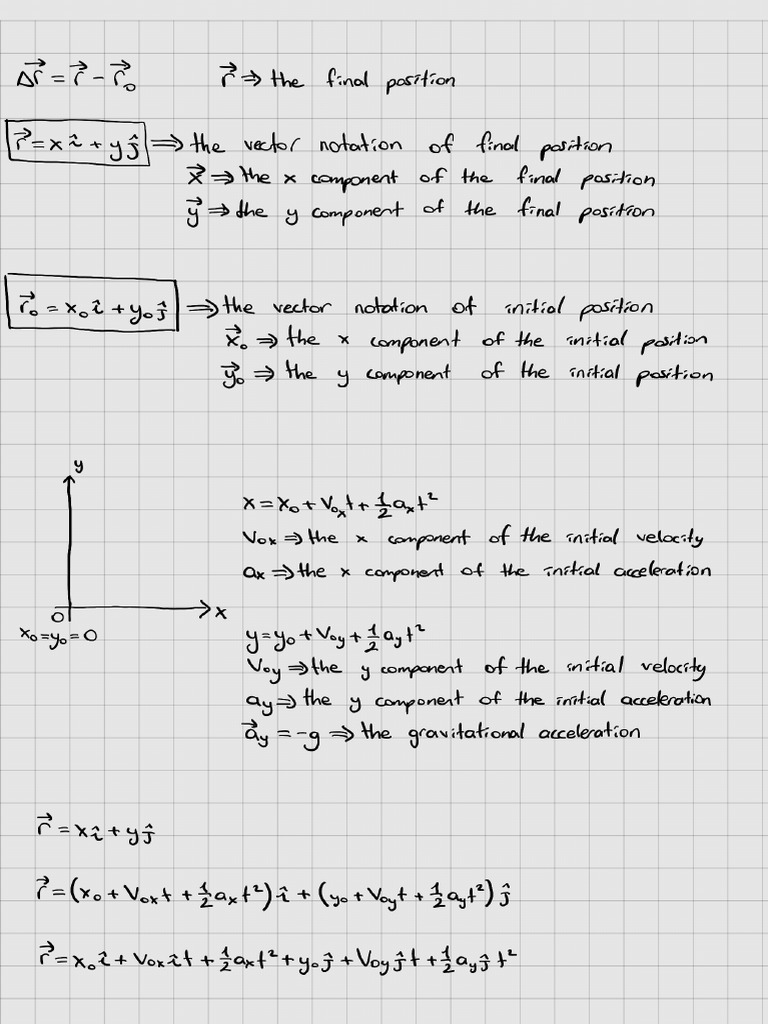 Δr⃗ = r⃗ - r⃗₀ r⃗ ⇒ the final position
r⃗ = xî + yĵ ⇒ the vector notation of final position
x⃗ ⇒ the x component of the final position
y⃗ ⇒ the y component of the final position
r⃗₀ = x₀î + y₀ĵ ⇒ the vector notation of initial position
x⃗₀ ⇒ the x component of the initial position
y⃗₀ ⇒ the y component of the initial position
y
x
0
x₀=y₀=0
x = x₀ + V₀ₓt + ½aₓt²
V₀ₓ ⇒ the x component of the initial velocity
aₓ ⇒ the x component of the initial acceleration
y = y₀ + V₀y + ½ayt²
V₀y ⇒ the y component of the initial velocity
ay ⇒ the y component of the initial acceleration
a⃗y = -g ⇒ the gravitational acceleration
r⃗ = xî + yĵ
r⃗ = (x₀ + V₀ₓt + ½aₓt²)î + (y₀ + V₀yt + ½ayt²)ĵ
r⃗ = x₀î + V₀ₓît + ½aₓt² + y₀ĵ + V₀yĵt + ½ayĵt²